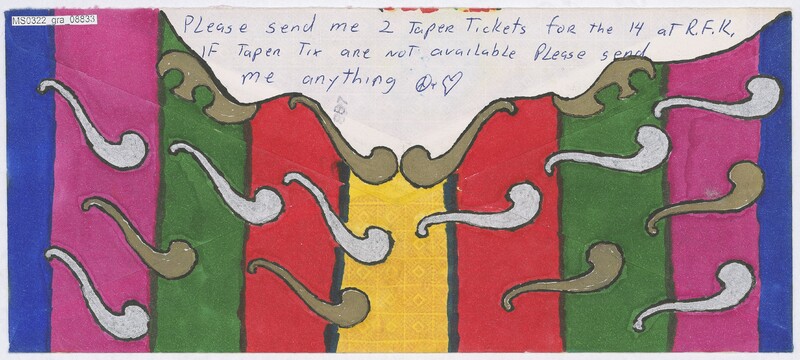 MS0322_gra_08833
Please send me 2 Taper Tickets for the 14 at R.F.K.
IF Taper Tix are not available Please send
me anything